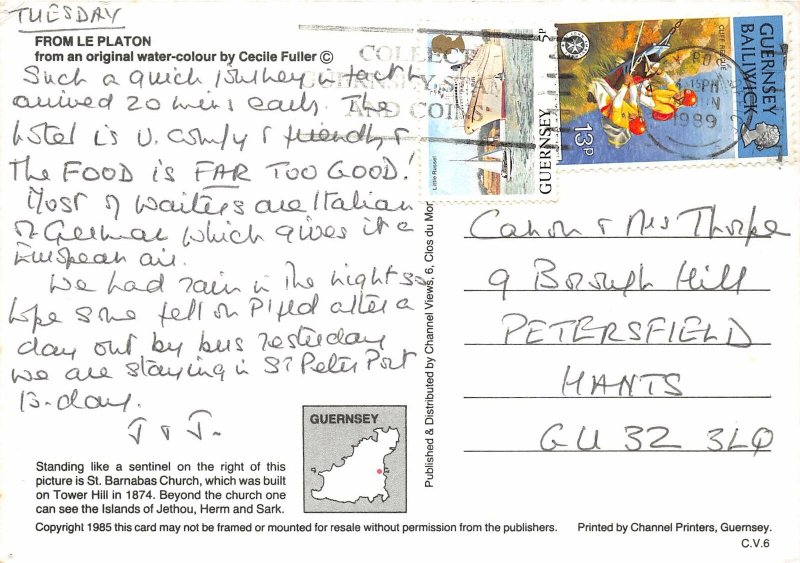 TUESDAY
FROM LE PLATON
from an original water-colour by Cecile Fuller ©
Such a quick journey in fact we
arrived 20 mins early. The
hotel is v. comfy & friendly &
THE FOOD IS FAR TOO GOOD!
Most of waiters are Italian
or German which gives it a
European air.
We had rain in the night so
hope some fell on P'fld after a
day out by bus yesterday
we are staying in St Peter Port
to-day.
J & J.
COLLECT
GUERNSEY STAMPS
AND COINS
Little Russel
GUERNSEY 5p
CLIFF RESCUE
13p
GUERNSEY
BAILIWICK
1989
Canon & Mrs Thorpe
9 Borough Hill
PETERSFIELD
HANTS
GU32 3LQ
Published & Distributed by Channel Views, 6, Clos du Mor
GUERNSEY
Standing like a sentinel on the right of this
picture is St. Barnabas Church, which was built
on Tower Hill in 1874. Beyond the church one
can see the Islands of Jethou, Herm and Sark.
Copyright 1985 this card may not be framed or mounted for resale without permission from the publishers.
Printed by Channel Printers, Guernsey.
C.V.6